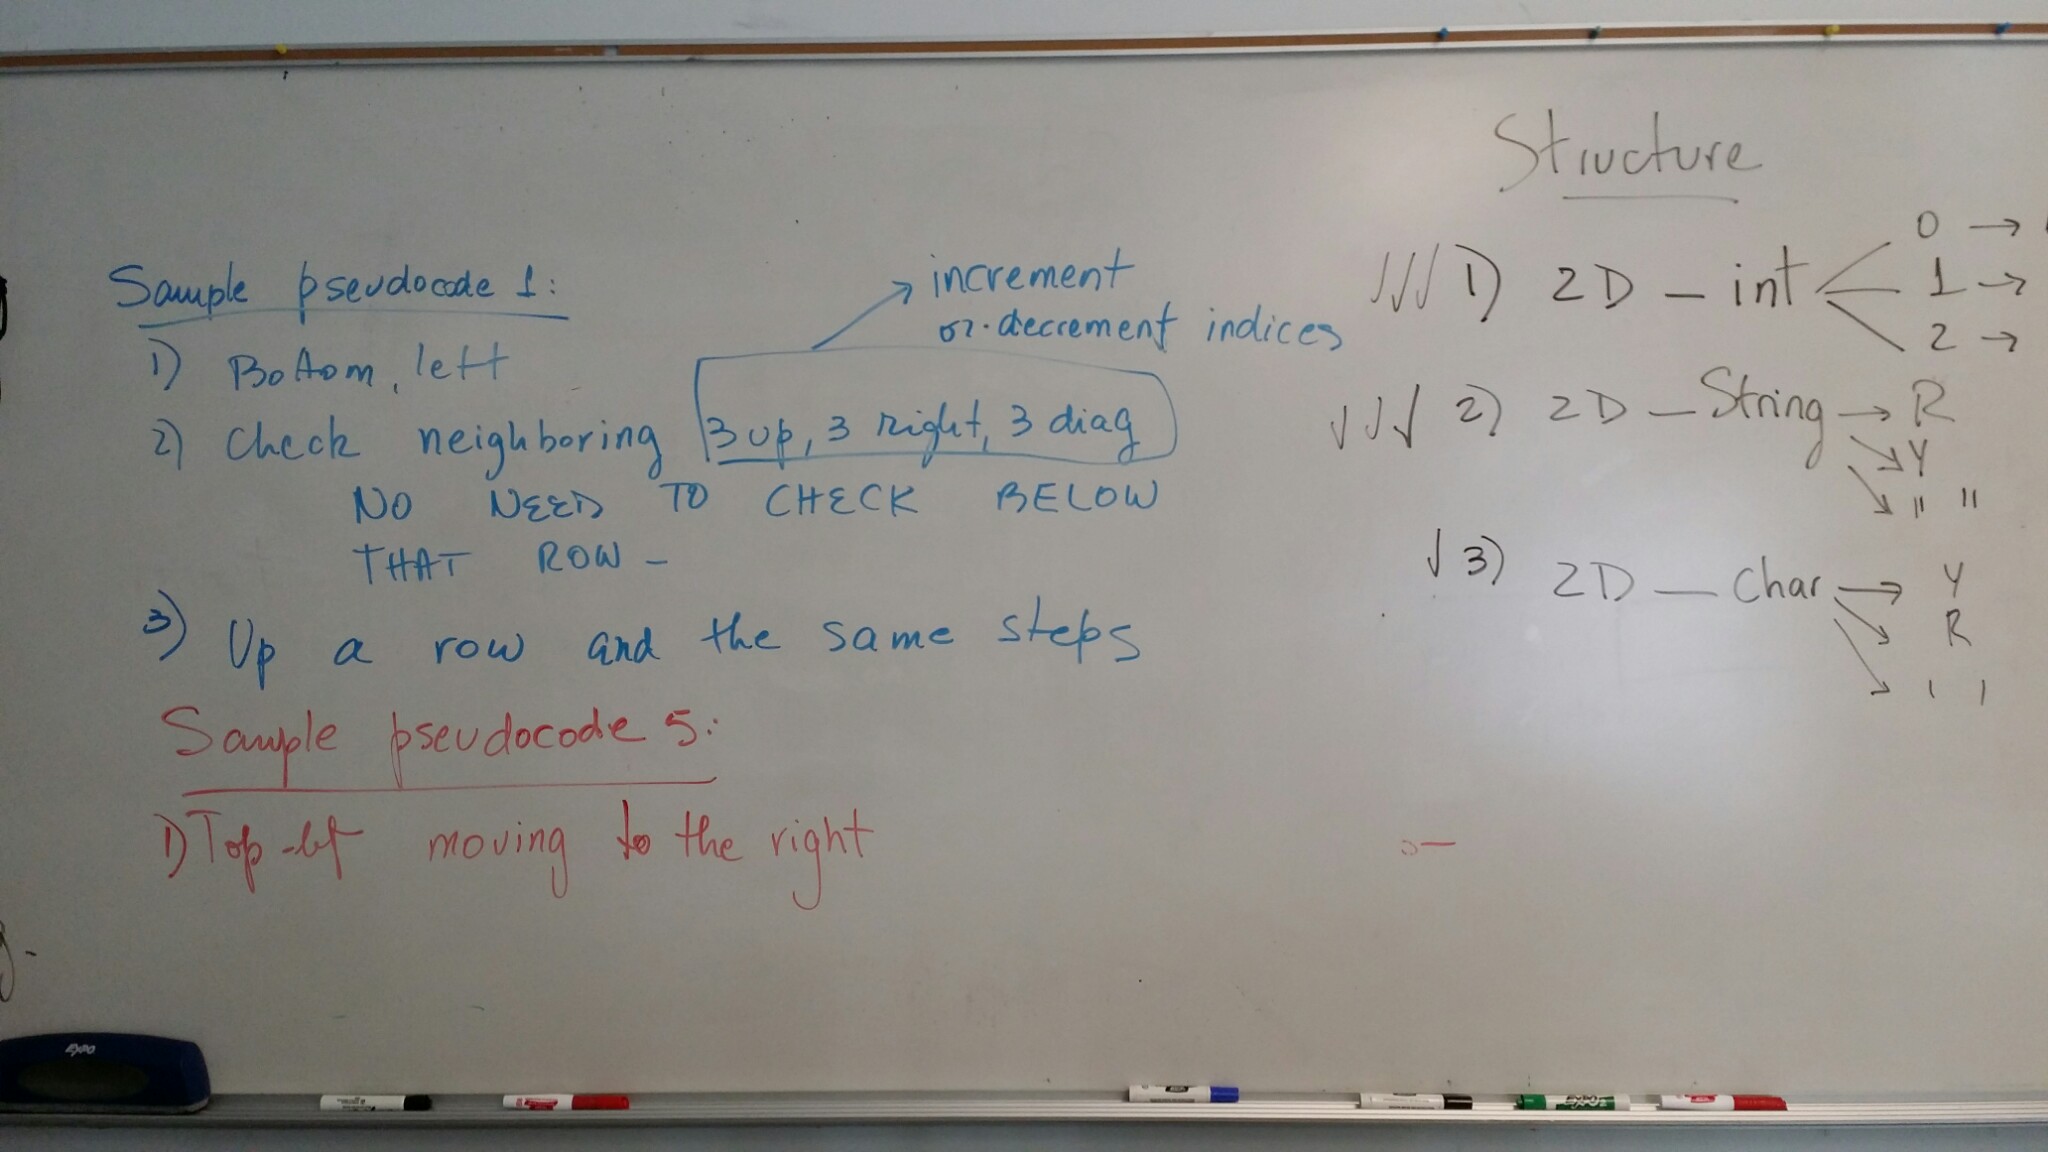 Sample pseudocode 1:
1) Bottom, left
2) Check neighboring 3 up, 3 right, 3 diag
→ increment
or decrement indices
NO NEED TO CHECK BELOW
THAT ROW -
3) Up a row and the same steps
Sample pseudocode 5:
1) Top-left moving to the right
Structure
✓✓✓ 1) 2D - int
0 →
1 →
2 →
✓✓✓ 2) 2D - String → R
Y
" "
✓ 3) 2D - Char → Y
R
' '
EXPO